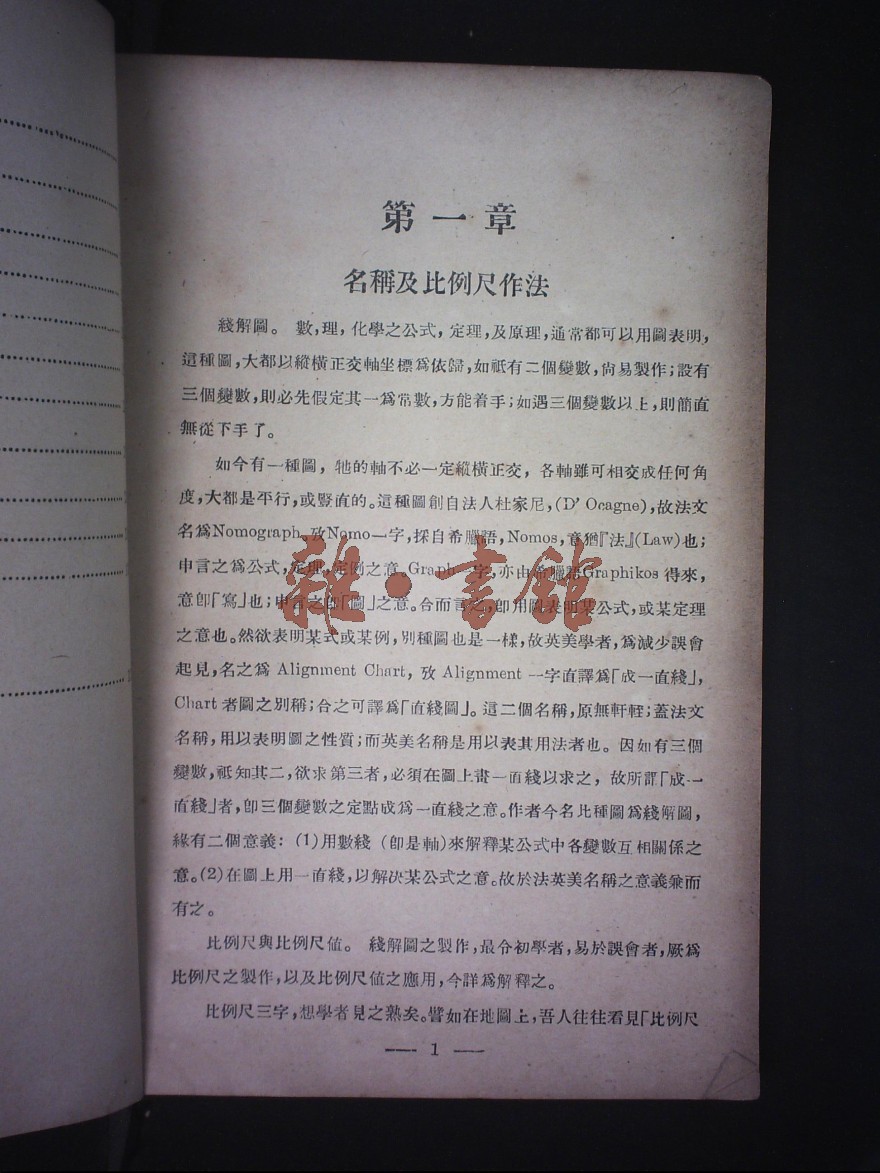 第一章
名稱及比例尺作法
綫解圖。 數,理,化學之公式,定理,及原理,通常都可以用圖表明,
這種圖,大都以縱橫正交軸坐標爲依歸,如祇有二個變數,尙易製作;設有
三個變數,則必先假定其一爲常數,方能着手;如遇三個變數以上,則簡直
無從下手了。
如今有一種圖,牠的軸不必一定縱橫正交,各軸雖可相交成任何角
度,大都是平行,或豎直的。這種圖創自法人杜家尼,(D' Ocagne),故法文
名爲Nomograph, 攷Nomo一字,採自希臘語,Nomos,意猶『法』(Law)也;
申言之爲公式,定理,定例之意。Graph一字,亦由希臘語Graphikos 得來,
意卽「寫」也;申言之卽「圖」之意。合而言之,卽用圖表明某公式,或某定理
之意也。然欲表明某式或某例,別種圖也是一樣,故英美學者,爲減少誤會
起見,名之爲 Alignment Chart, 攷 Alignment 一字直譯爲「成一直綫」,
Chart 者圖之別稱;合之可譯爲「直綫圖」。這二個名稱,原無軒輊;蓋法文
名稱,用以表明圖之性質;而英美名稱是用以表其用法者也。因如有三個
變數,祇知其二,欲求第三者,必須在圖上畫一直綫以求之,故所謂「成一
直綫」者,卽三個變數之定點成爲一直綫之意。作者今名此種圖爲綫解圖,
緣有二個意義:(1)用數綫(卽是軸)來解釋某公式中各變數互相關係之
意。(2)在圖上用一直綫,以解決某公式之意。故於法英美名稱之意義兼而
有之。
比例尺與比例尺値。 綫解圖之製作,最令初學者,易於誤會者,厥爲
比例尺之製作,以及比例尺値之應用,今詳爲解釋之。
比例尺三字,想學者見之熟矣。譬如在地圖上,吾人往往看見「比例尺
— 1 —
雜·書館